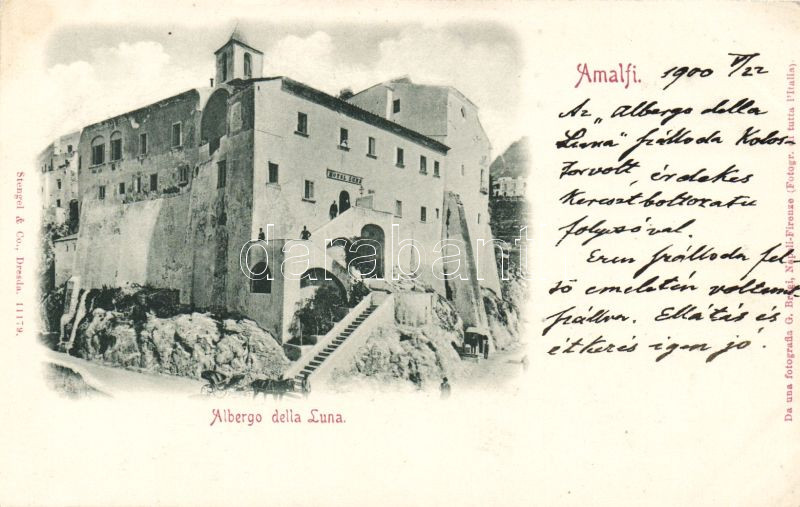 Amalfi. 1900 V/22
Az "Albergo della
Luna" szálloda Kolos-
tor volt érdekes
Kereszt boltozatu
folyosóval.
Ezen szálloda fel-
ső emeletén voltam
szállva. Ellátás és
étkezés igen jó.
HOTEL LUNA
darabanth
Albergo della Luna.
Stengel & Co., Dresda. 11179.
Da una fotografia G. Brogi, Napoli-Firenze (Fotogr. di tutta l'Italia)